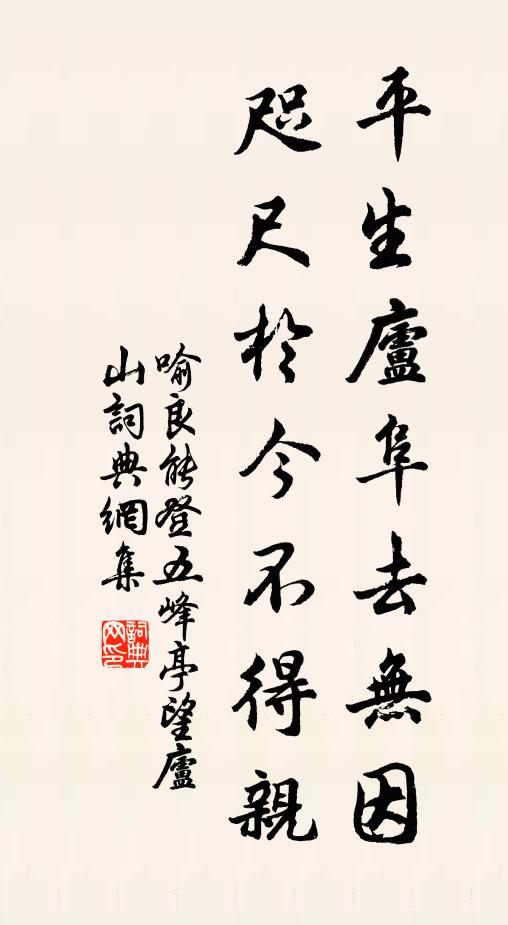 平生廬阜去無因
咫尺於今不得親
喻良能登五峰亭望廬
山詞典網集
詞典
网印